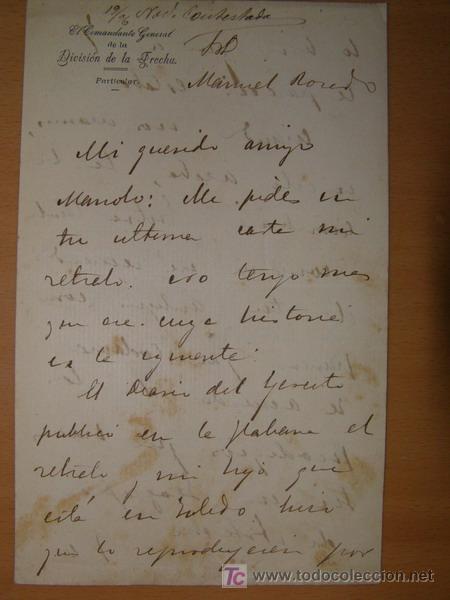 19/6 Nov. Contestada
El Comandante General
de la
División de la Trocha.
Particular
Manuel
Mi querido amigo
Manolo: Me pides en
tu ultima carta mi
retrato. no tengo mas
que ese. cuya historia
es la siguiente:
El Diario del Ejercito
publicó en la Habana el
retrato y mi hijo que
está en Toledo hizo
que lo reprodujeran por
TC www.todocoleccion.net